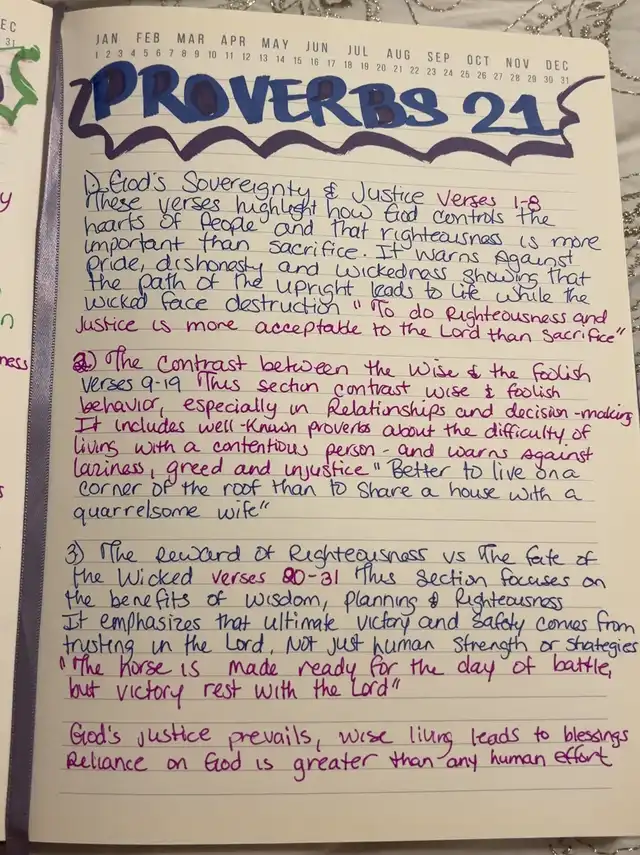 EC
31
JAN FEB MAR APR MAY JUN JUL AUG SEP OCT NOV DEC
1 2 3 4 5 6 7 8 9 10 11 12 13 14 15 16 17 18 19 20 21 22 23 24 25 26 27 28 29 30 31
PROVERBS 21
1) God's Sovereignty & Justice Verses 1-8
These verses highlight how God controls the
hearts of People and that righteousness is more
important than sacrifice. It warns Against
Pride, dishonasty and wickedness showing that
the path of the upright leads to life while the
wicked face destruction "To do Righteousness and
Justice is more acceptable to the Lord than Sacrifice"
2) The Contrast between the Wise & the foolish
Verses 9-19 This section contrast wise & foolish
behavior, especially in Relationships and decision-making
It includes well-known proverbs about the difficulty of
living with a contentious person - and warns Against
laziness, greed and injustice "Better to live on a
corner of the roof than to share a house with a
quarrelsome wife"
3) The Reward Of Righteousness vs The fate of
the Wicked verses 20-31 This Section focuses on
the benefits of wisdom, planning & Righteousness
It emphasizes that ultimate victory and safety comes from
trusting in the Lord, Not just human Strength or strategies
"The horse is made ready for the day of battle,
but victory rest with the Lord"
God's justice prevails, wise living leads to blessings
Reliance on God is greater than any human effort